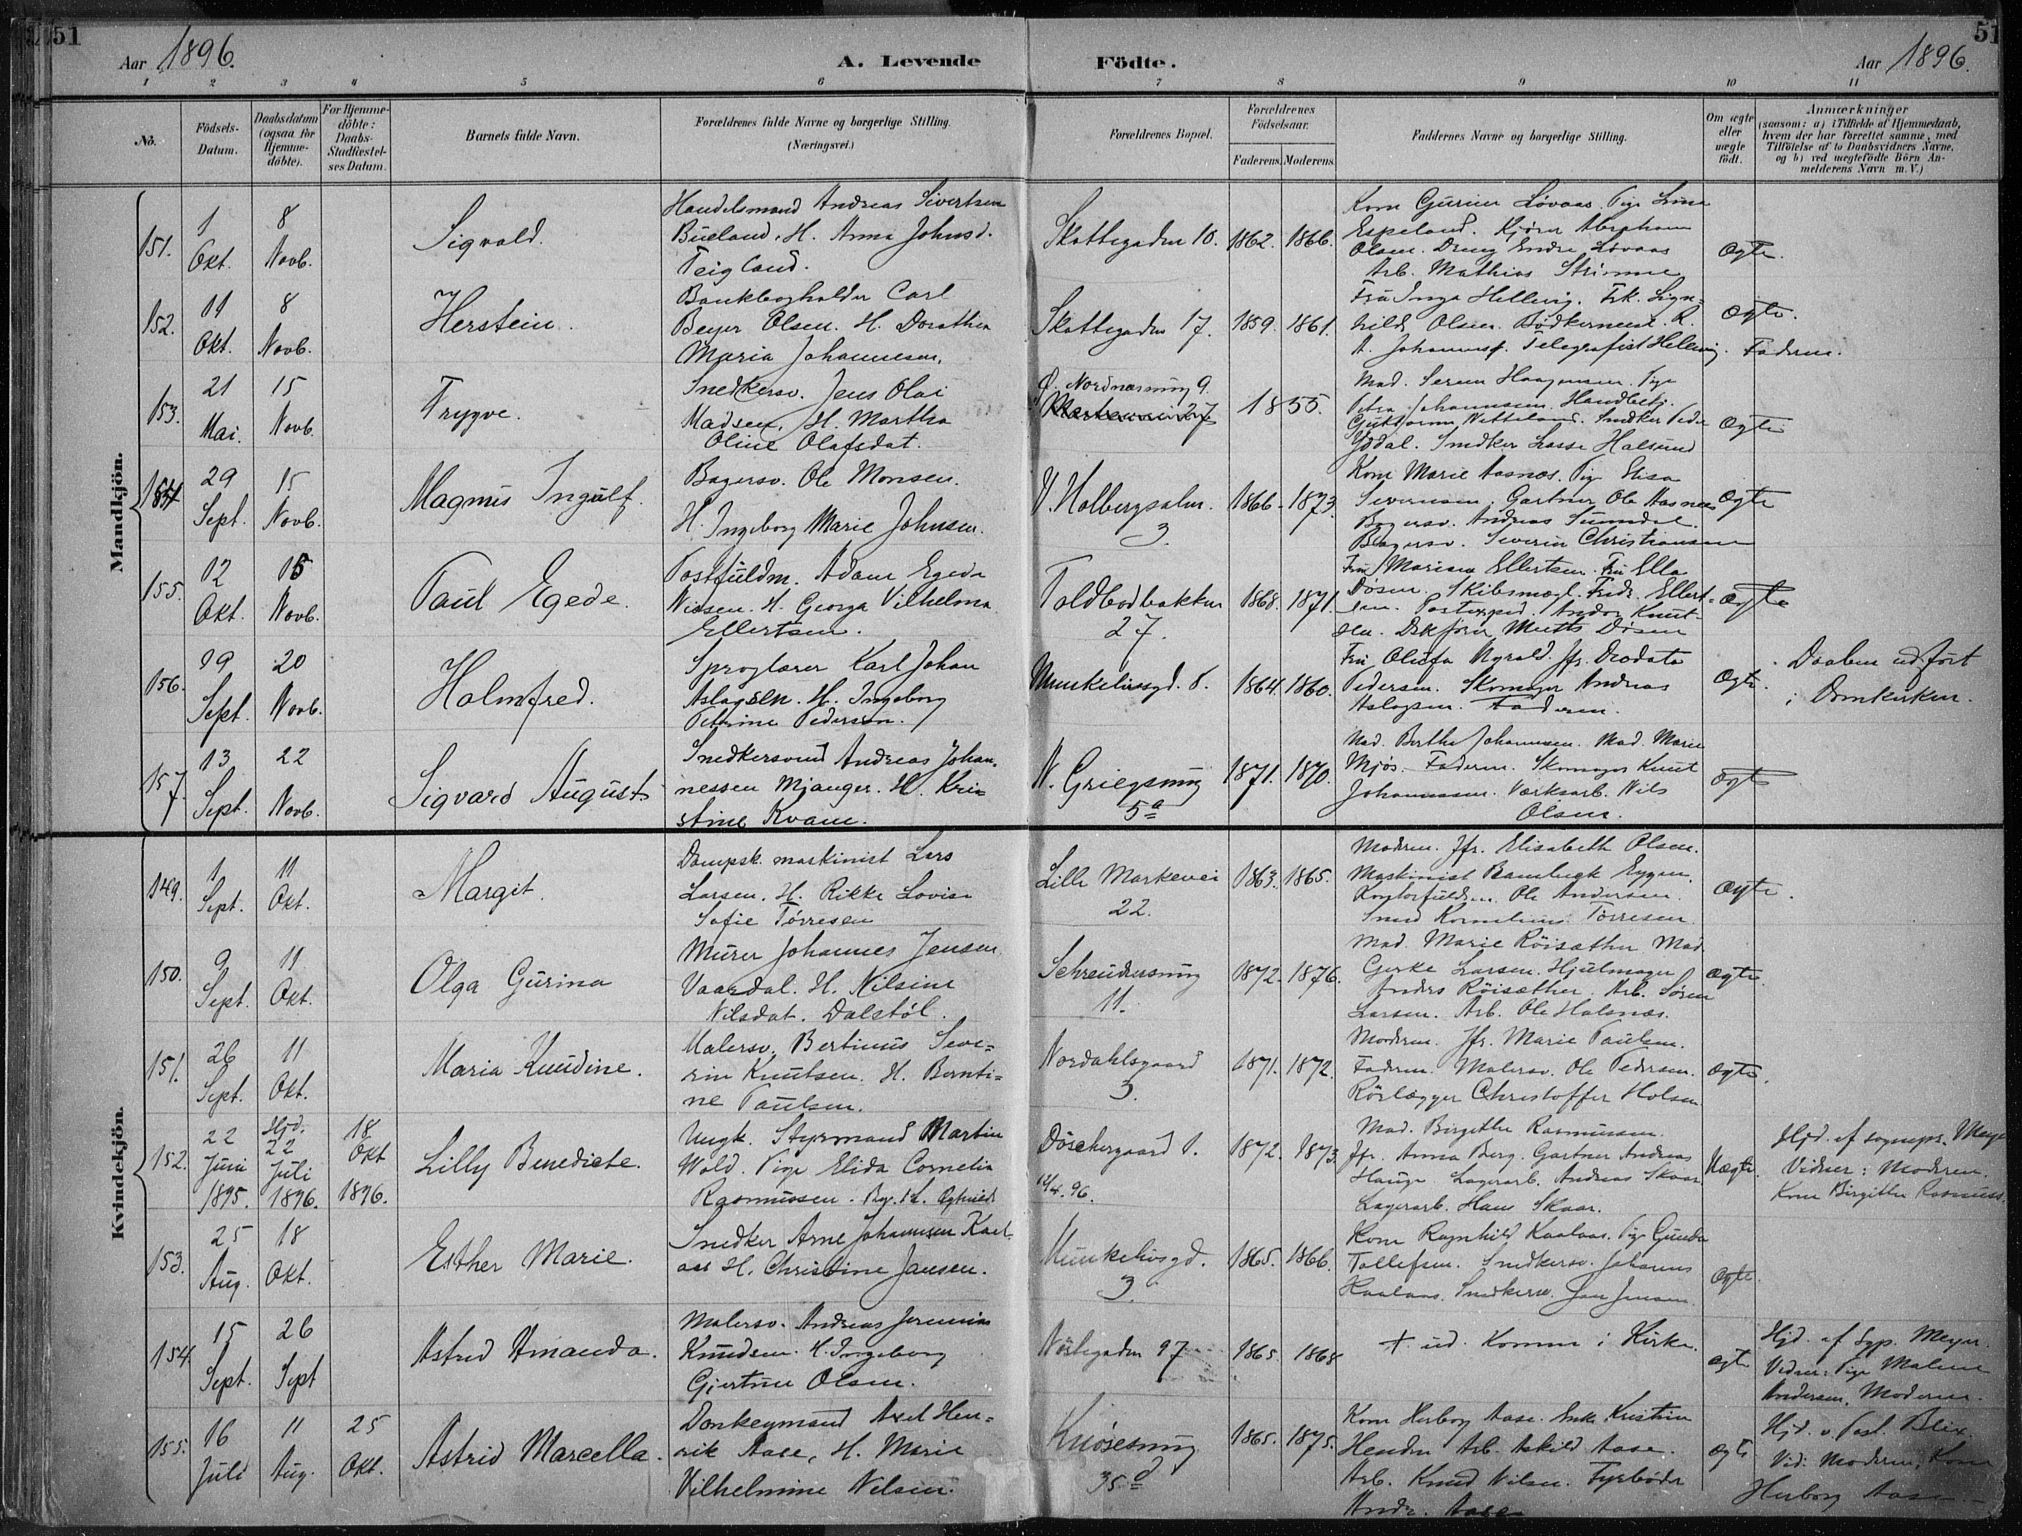 51
51
Aar 1896.
A. Levende Födte.
Aar 1896.
1 2 3 4 5 6 7 8 9 10 11
No.
Födsels-
Datum.
Daabsdatum
(ogsaa for
Hjemme-
döbte).
For Hjemme-
döbte:
Daabs-
Stadfæstel-
ses Datum.
Barnets fulde Navn.
Forældrenes fulde Navne og borgerlige Stilling.
(Næringsvei.)
Forældrenes Bopæl.
Forældrenes
Födselsaar.
Faderens. Moderens.
Faddernes Navne og borgerlige Stilling.
Om ægte
eller
uægte
födt.
Anmærkninger
(saasom: a) i Tilfælde af Hjemmedaab,
hvem der har forrettet samme, med
Tilföielse af to Daabsvidners Navne,
og b) ved uægtefödte Börn An-
melderens Navn m. V.)
Mandkjön.
151.
1
Okt.
8
Novb.
Sigvald.
Handelsmand Andreas Sivertsen
Bueland. H. Anna Johnsd.
Teigland.
Skottegaden 10.
1862. 1866.
Kone Gurine Løvaas. Pige
Espeland. Kjører Abraham
Olsen. Dreng Endre Løvaas
Arb. Mathias Strømme
Ægte.
152.
11
Okt.
8
Novb.
Herstein.
Bankbogholder Carl
Beyer Olsen. H. Dorothea
Maria Johannesen.
Skottegaden 17.
1859. 1861.
Fru Inga Hellevig. Frk. Sign-
hild Olsen. Bødkermest. R.
A. Johannes. Telegrafist Hellevig. Faderen.
Ægte.
153.
21
Mai.
15
Novb.
Trygve.
Snedkersv. Jens Olai
Madsen. H. Martha
Oline Olafsdat.
Ø. Nordnæsmug 9.
1855.
Mad. Seren Haagensen. Pige
Petra Johannesen. Handlbetj.
Guttorm Vetteland. Snedker Peder
Yddal. Snedker Lasse Halsund
Ægte
154
29
Sept.
15
Novb.
Magnus Ingulf.
Bagersv. Ole Monsen.
H. Ingeborg Marie Johnsen.
V. Holbergsalm.
3.
1866. 1873.
Kone Marie Aasnæs. Pige Elisa
Severinsen. Gartner Ole Aasnæs
Bagersv. Andreas Sunndal.
Bagersv. Severin Christiansen
Ægte
155.
12
Okt.
15
Novb.
Paul Egede.
Postfuldm. Adam Egede
Nissen. H. Georga Vilhelma
Ellertsen.
Toldbodbakken
27.
1868. 1871.
Fru Marisea Ellertsen. Fru Ella
Døsen. Skibsmægl. Fredr. Ellert-
sen. Postexped. Andor Knut-
sen. Mentz Døsen
Ægte
156.
19
Sept.
20
Novb.
Holmfred.
Sproglærer Karl Johan
Aslagsen. H. Ingeborg
Petrine Pedersen.
Munkelivsgd. 8.
1864. 1860.
Fru Olufa Nyvold. Jfr. Deodata
Pedersen. Skomager Andreas
Aslagsen. Faderen.
Ægte.
Daaben udført
i Domkirken.
157.
13
Sept.
22
Novb.
Sigvard August.
Snedkersvend Andreas Johan-
nessen Mjanger. H. Kri-
stine Kvam.
N. Griegsmug
5a
1871. 1870.
Mad. Bertha Johannesen. Mad. Marie
Mjøs. Faderen. Skomager Knut
Johannesen. Værksarb. Nils
Olsen.
Ægte
Kvindekjön.
149.
1
Sept.
11
Okt.
Margit.
Dampsk. maskinist Lars
Larsen. H. Rikke Lovise
Sofie Tørresen
Lille Markevei
22.
1863. 1865.
Moderen. Jfr. Elisabeth Olsen.
Maskinist
Kontorfuldm. Ole Andersen.
Smed Kornelius Tørresen.
Ægte.
150.
9
Sept.
11
Okt.
Olga Gurina
Murer Johannes Jensen
Vaardal. H. Nilsine
Nilsdat. Dalstøl.
Schreudersmug
11.
1872. 1876.
Mad. Marie Röisæther Mad.
Gjerke Larsen. Hjulmager
Anders Röisæther. Arb. Sören
Larsen. Arb. Ole Halsnæs.
Ægte.
151.
26
Sept.
11
Okt.
Maria Knudine.
Malersv. Bertinius Seve-
rin Knutsen. H. Bernti-
ne Paulsen.
Nordahlsgaard
3.
1871. 1872.
Moderen. Jfr. Marie Paulsen.
Faderen. Malersv. Ole Pedersen.
Rörlægger Christoffer Holsen
Ægte.
152.
22
Juni
1895.
Hjd.
22
Juli
1896.
18
Okt
1896.
Lilly Benedicte.
Ungk. Styrmand Martin
Wold. Pige Elida Cornelia
Rasmussen.
Döseckergaard 1.
14/4.96.
1872. 1873.
Mad. Birgithe Rasmussen.
Jfr. Anna Berg. Gartner Andreas
Hauge. Lagerarb. Andreas Skaar
Lagerarb. Hans Skaar.
Uægte.
Hjd. af sognepr. Meyer
Vidner: Moderen.
Kone Birgithe Rasmuss.
153.
25
Aug.
18
Okt.
Esther Marie.
Snedker Arne Johannesen Kaal-
aas H. Christine Jansen.
Munkelivsgd.
3.
1865. 1866.
Kone Ragnhild Kaalaas. Pige Gunda
Tollefsen. Snedkersv. Johannes
Kaalaas. Snedkersv. Jan Jensen.
Ægte.
154.
15
Sept.
26
Sept
Astrid Amanda.
Malersv. Andreas Jeremias
Knudsen. H. Ingeborg
Gjertine Olsen.
Nöstegaden 97
1865. 1868
+ ud. komme i Kirke.
Ægte
Hjd. af Sgp. Meyer.
Vidner: Pige Malene
Andersen. Moderen.
155.
16
Juli
11
Aug.
25
Okt.
Astrid Marcella.
Donkeymand Axel Hen-
rik Aase, H. Marie
Vilhelmine Nilsen.
Knösesmug
35d
1865. 1875.
Kone Herborg Aase. Enke Kristine
Arb. Askild Aase.
Arb. Knud Nilsen. Fyrböder
Andr. Aase
Ægte
Hjd. v. Past. Blix.
Vid: Moderen, Kone
Herborg Aase.